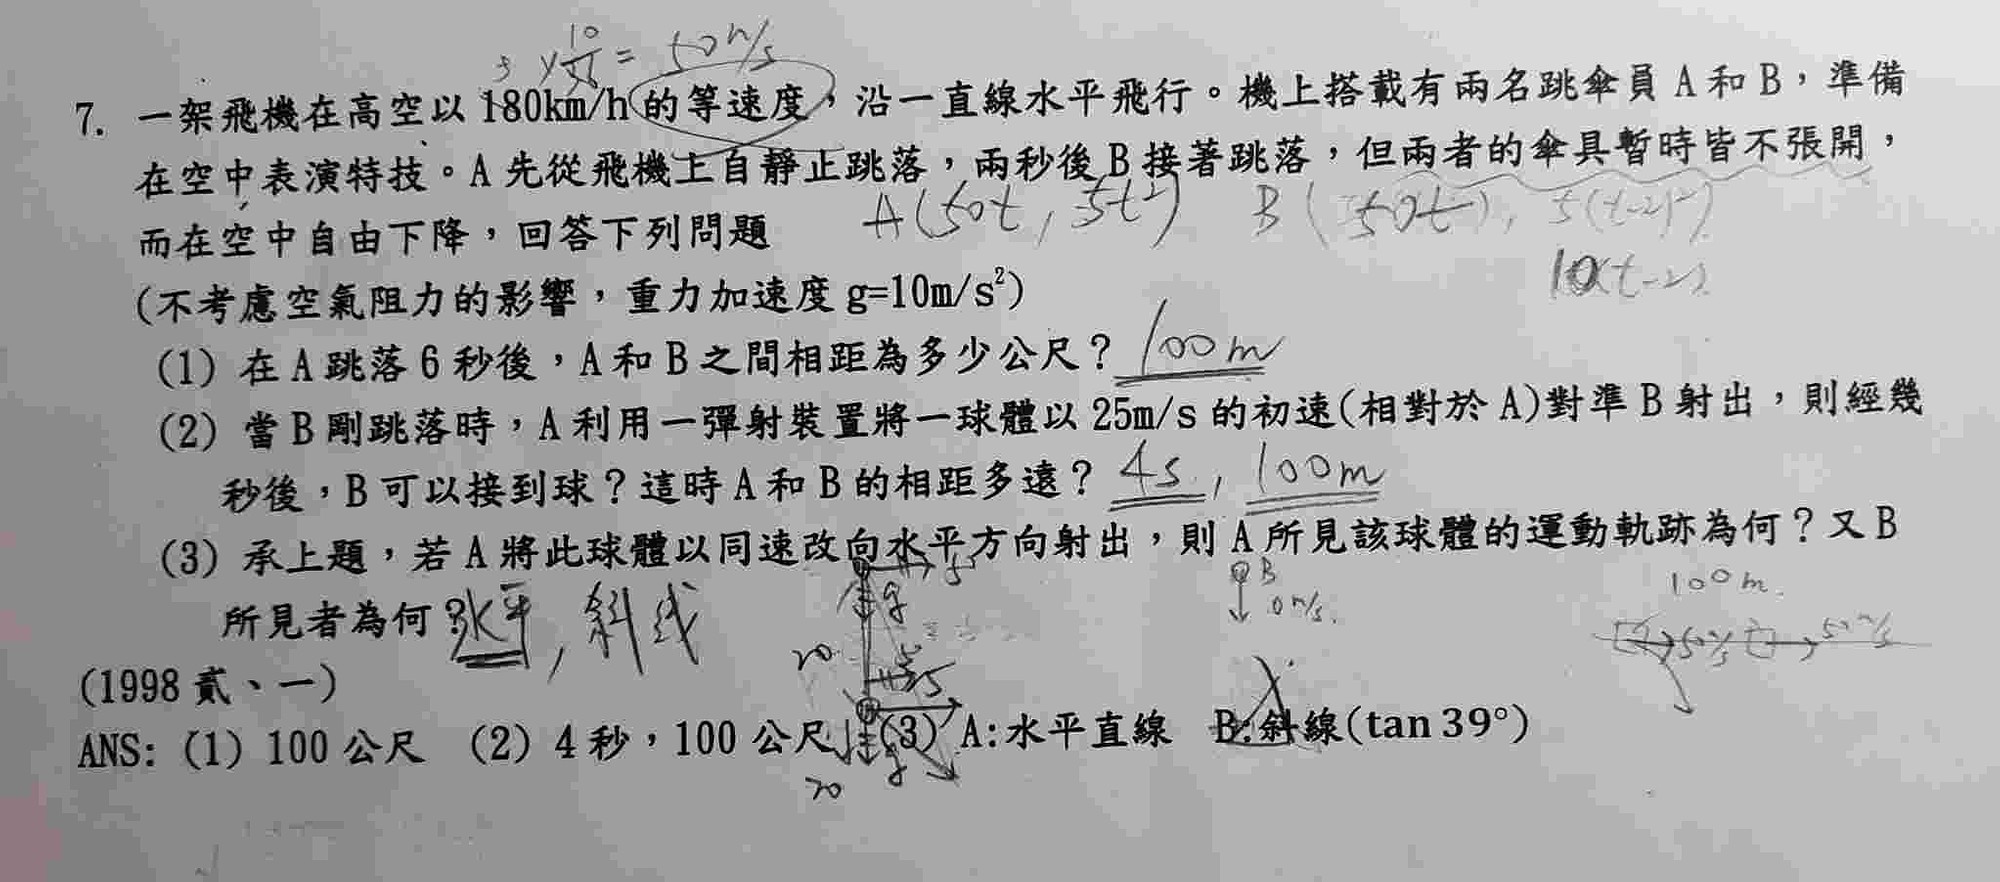 10
= 50m/s
7. 一架飛機在高空以180km/h的等速度，沿一直線水平飛行。機上搭載有兩名跳傘員A和B，準備
在空中表演特技。A先從飛機上自靜止跳落，兩秒後B接著跳落，但兩者的傘具暫時皆不張開，
A(50t, 5t²) B(50t), 5(t-2)²)
而在空中自由下降，回答下列問題
10(t-2)
(不考慮空氣阻力的影響，重力加速度g=10m/s²)
(1) 在A跳落6秒後，A和B之間相距為多少公尺？ 100m
(2) 當B剛跳落時，A利用一彈射裝置將一球體以25m/s的初速(相對於A)對準B射出，則經幾
秒後，B可以接到球？這時A和B的相距多遠？ 4s, 100m
(3) 承上題，若A將此球體以同速改向水平方向射出，則A所見該球體的運動軌跡為何？又B
B
0m/s.
100m.
所見者為何？水平, 斜线
g
20
50m/s 50m/s
(1998 貳、一)
ANS: (1) 100公尺 (2) 4秒，100公尺 (3) A:水平直線 B:斜線(tan 39°)
g
20